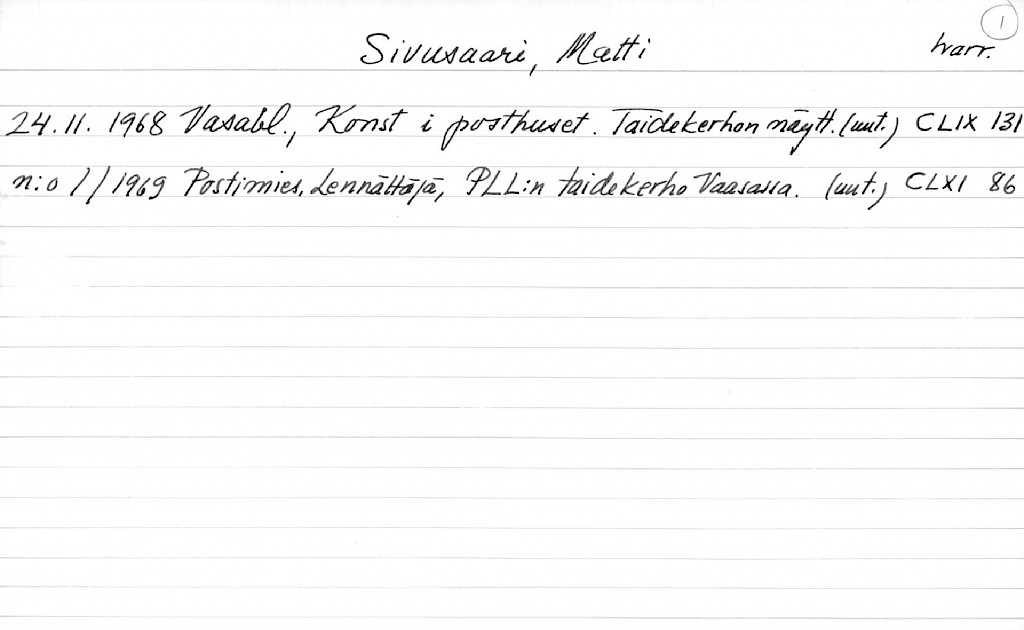 1
Sivusaari, Matti harr.
24.11. 1968 Vasabl., Konst i posthuset. Taidekerhon näytt. (uut.) CLIX 131
n:o 1/1969 Postimies, Lennättäjä, PLL:n taidekerho Vaasassa. (uut.) CLXI 86